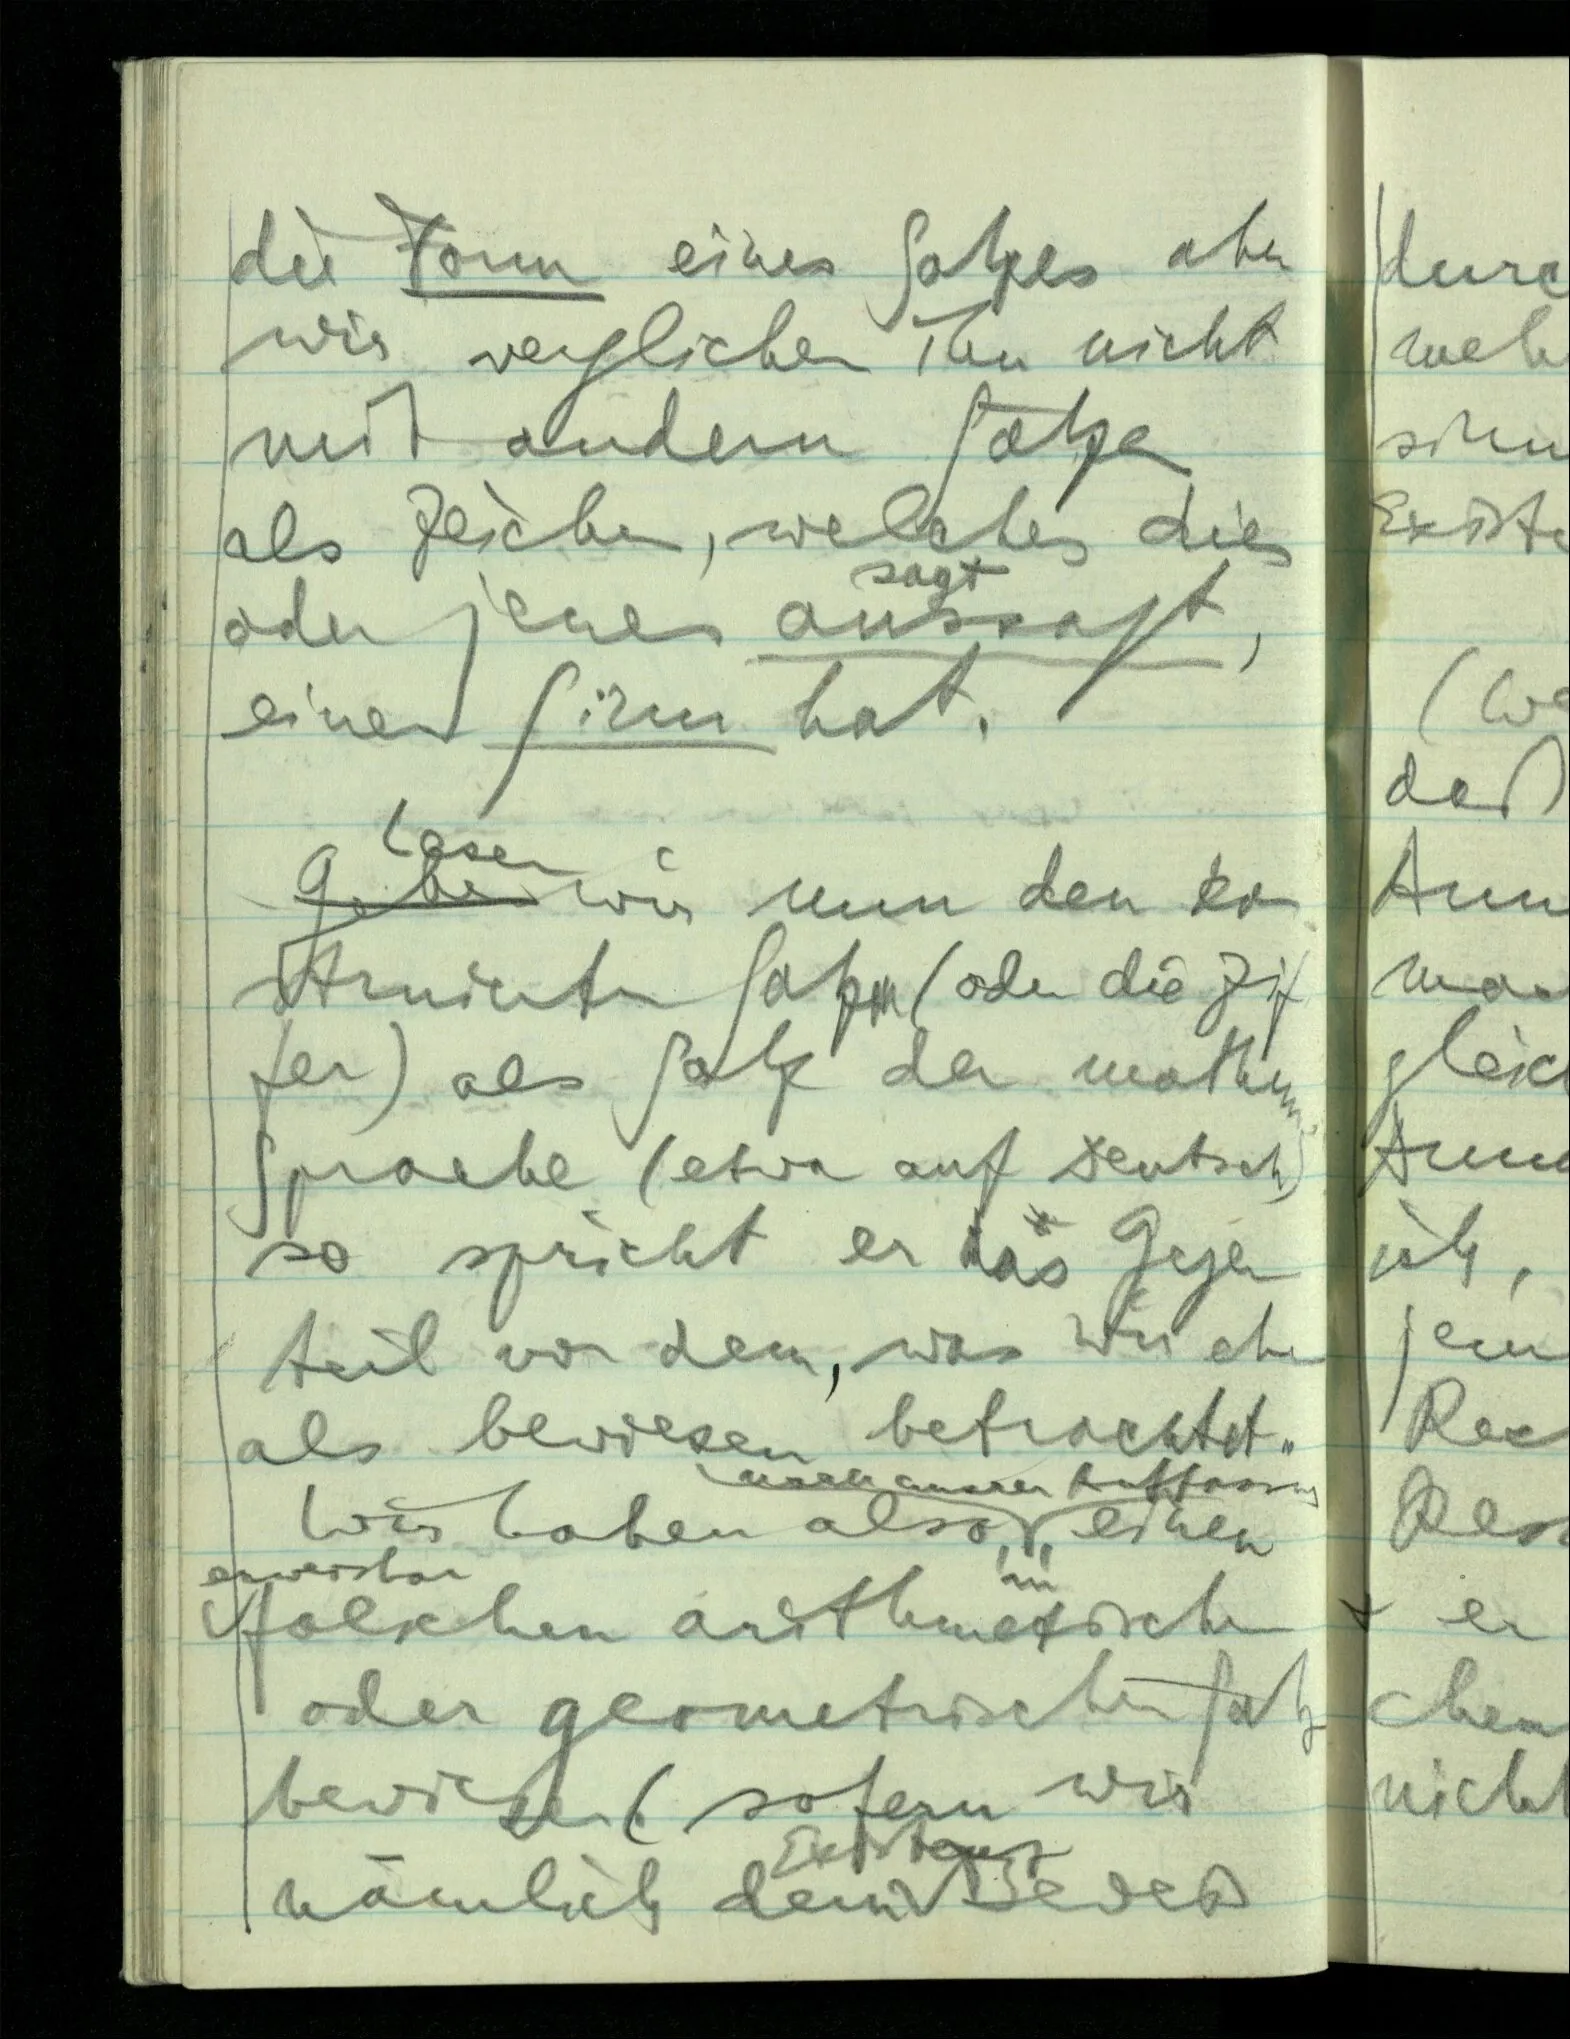 die Form eines Satzes aber
wir verglichen ihn nicht
mit andern Sätzen
als Zeichen, welches dies
sagt
oder jenes aussagt,
einen Sinn hat.
Lesen
Geben wir nun den ko
struierten Satz (oder die Zif
fer) als Satz der mathem
Sprache (etwa auf Deutsch)
so spricht er das Gegen
teil von dem, was wir eben
als bewiesen betrachtet.
nach unsrer Auffassung
Wir haben also, einen
erweisbar
falschen arithmetischen
oder geometrischen Satz
bewiesen (sofern wir
Existenz
nämlich den Beweis
durc
sinn
Existe
(We
daß
Ann
gleich
ich,
jen
er
chen
nicht